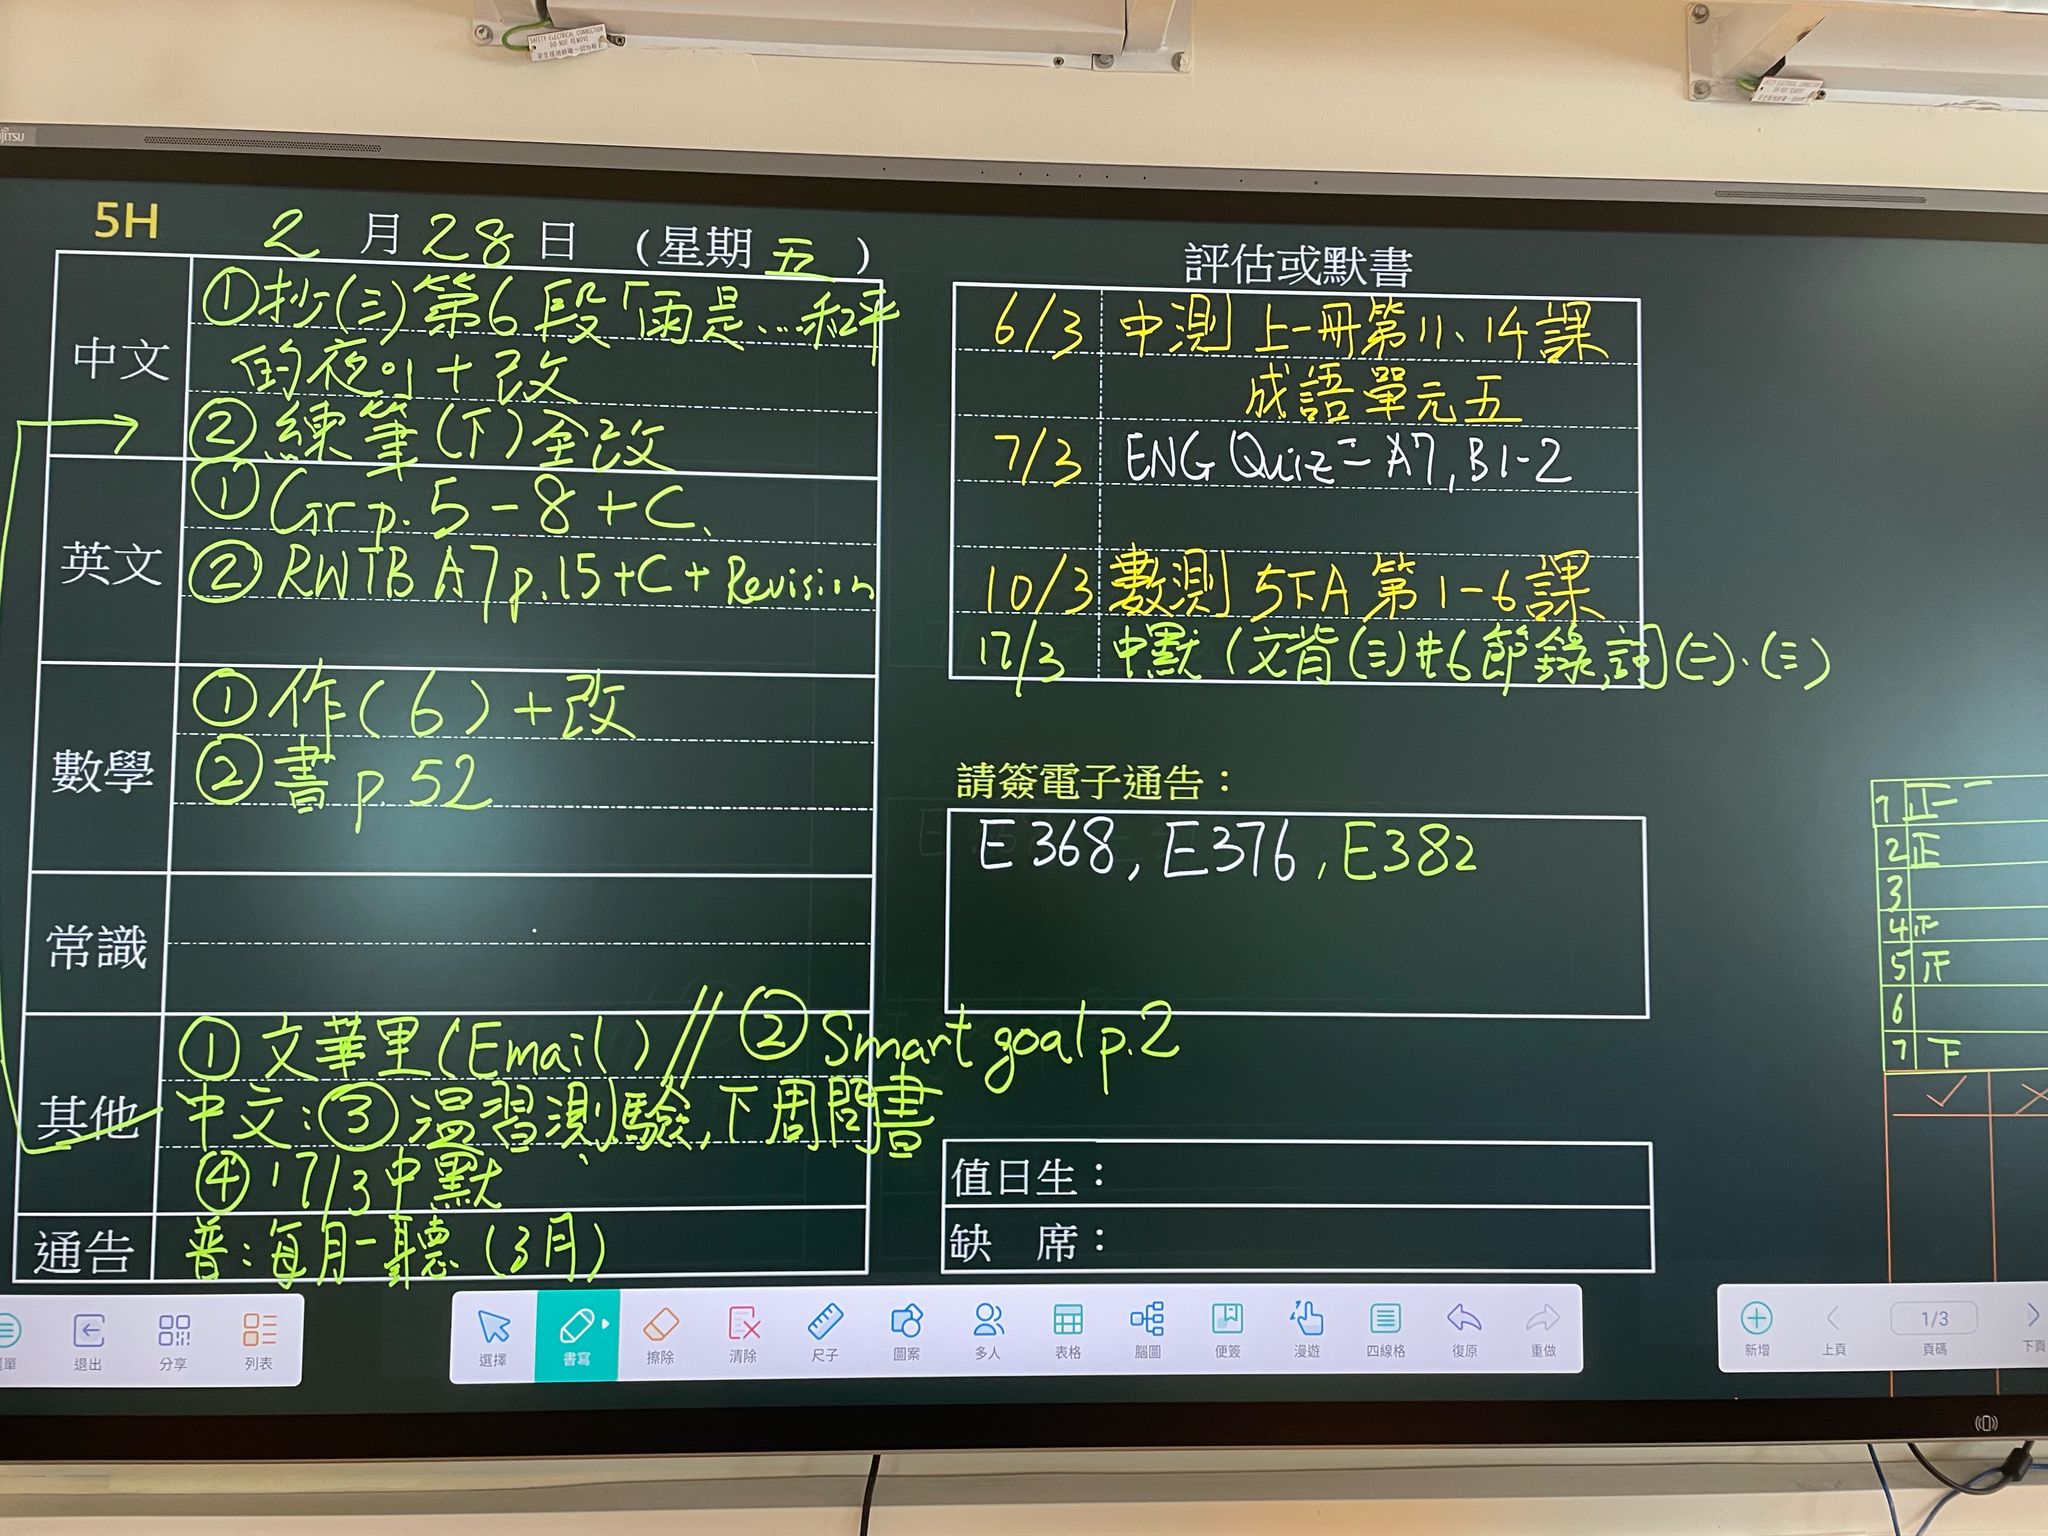 SAFETY ELECTRICAL CONNECTION
DO NOT REMOVE
安全接地終端一切勿移去
5H
2 月 28 日 (星期 五)
中文
①抄(三)第6段「雨是...和平
的夜。」+改
②練筆(下)全改
英文
①Gr p. 5-8 + C.
②RWTB A7 p.15+C+Revision
數學
①作(6)+改
②書 p.52
常識
其他
①文華里(Email) // ②Smart goal p.2
中文:③溫習測驗,下周問書
④17/3中默
通告
普:每月一聽(3月)
評估或默書
6/3 中測 上一冊第11、14課
成語單元五
7/3 ENG Quiz = A7, B1-2
10/3 數測 5下A 第1-6課
17/3 中默(文背(三)#6節錄,詞(二)、(三)
請簽電子通告:
E368, E376, E382
值日生:
缺 席:
1 正一
2 正
3
4
5
6
7 下
退出
分享
列表
選擇
書寫
擦除
清除
尺子
圖案
多人
表格
腦圖
便簽
漫遊
四線格
復原
重做
新增
上頁
1/3
頁碼
下頁